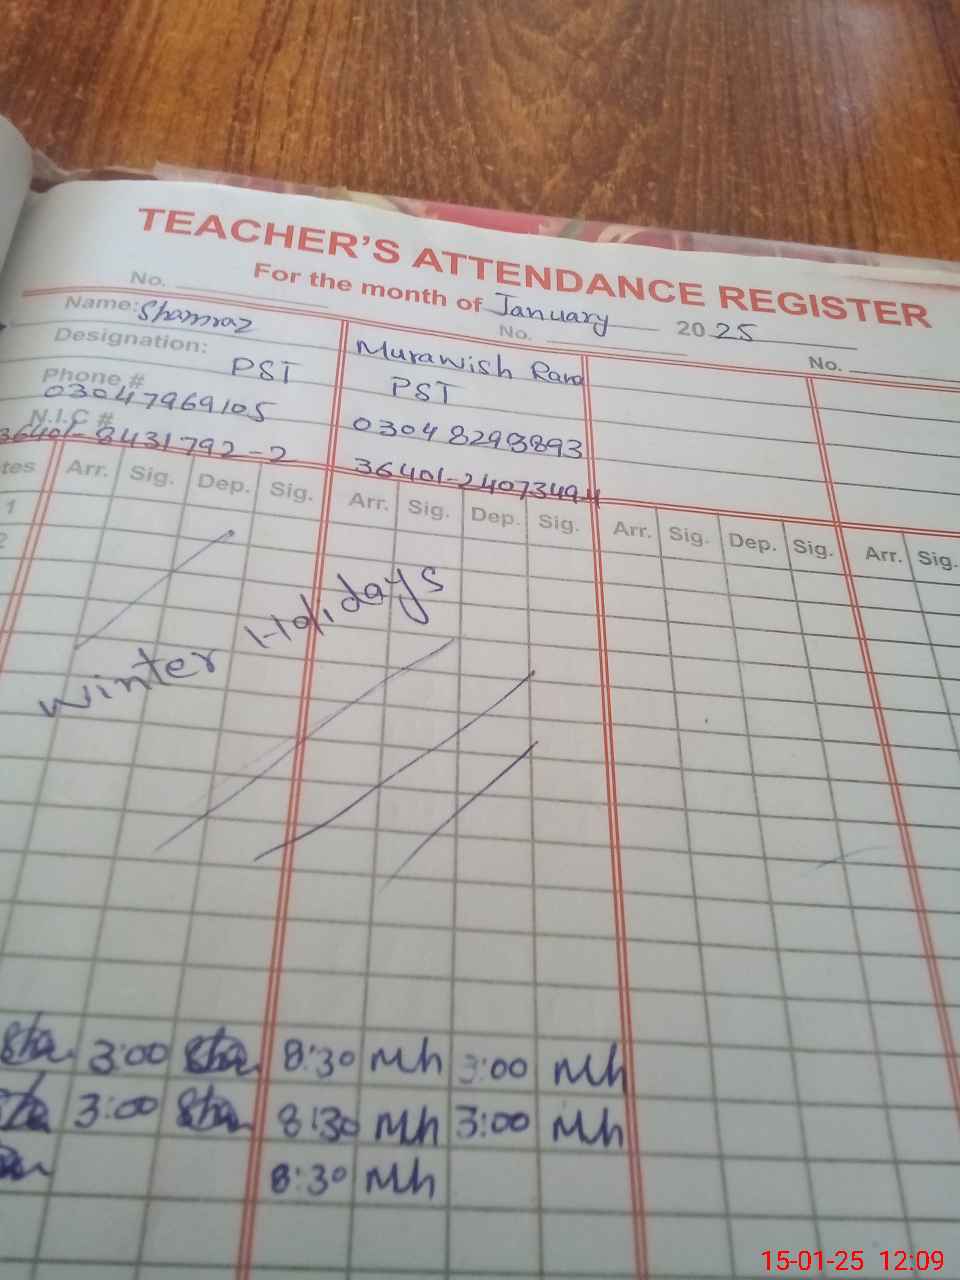 TEACHER'S ATTENDANCE REGISTER
For the month of January 2025
No. No. No.
Name: Shamraz Murawish Rana
Designation: PST PST
Phone # 03047969105 03048298893
N.I.C # 36401-8431792-2 36401-2407349-4
tes Arr. Sig. Dep. Sig. Arr. Sig. Dep. Sig. Arr. Sig. Dep. Sig. Arr. Sig.
1
2
Winter Holidays
Sha 3:00 Sha 8:30 Mh 3:00 Mh
Sha 3:00 Sha 8:30 Mh 3:00 Mh
8:30 Mh
15-01-25 12:09